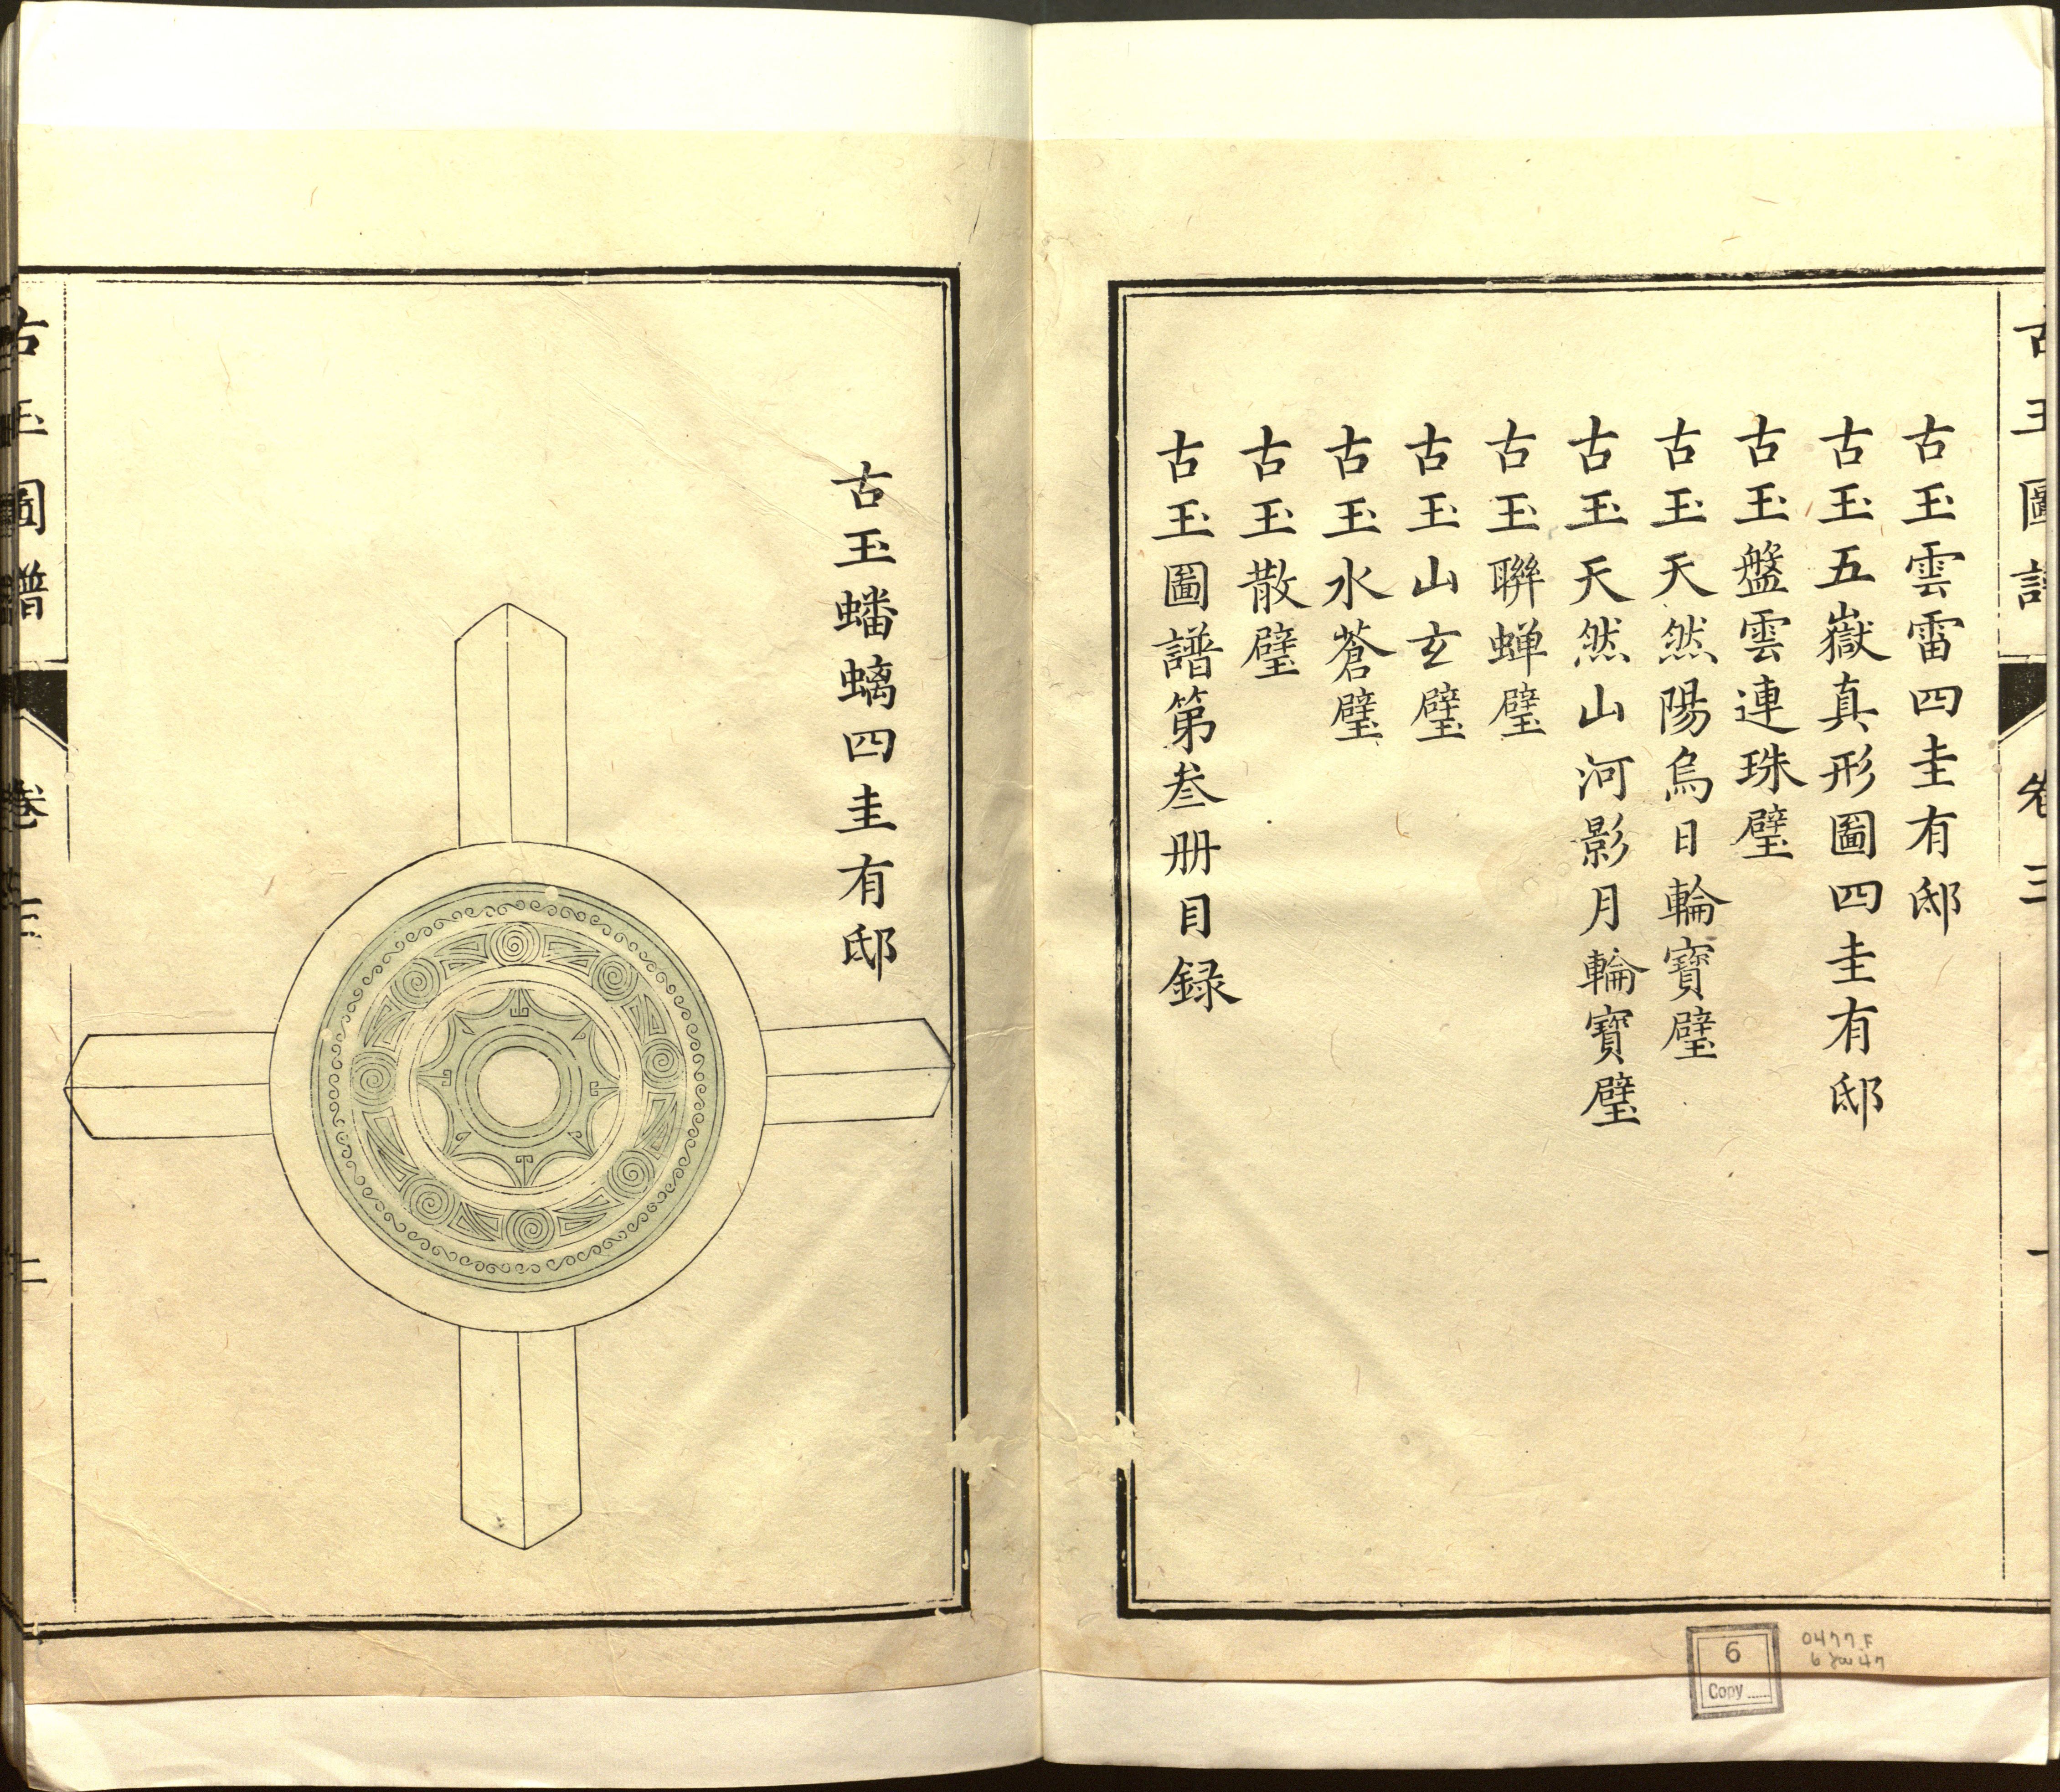 古玉圖譜 卷三 一
古玉雲雷四圭有邸
古玉五嶽真形圖四圭有邸
古玉盤雲連珠璧
古玉天然陽烏日輪寶璧
古玉天然山河影月輪寶璧
古玉聯蝉璧
古玉山玄璧
古玉水蒼璧
古玉散璧
古玉圖譜第叁册目録
6
Copy
0477.F
古玉蟠螭四圭有邸
古玉圖譜 卷三 二